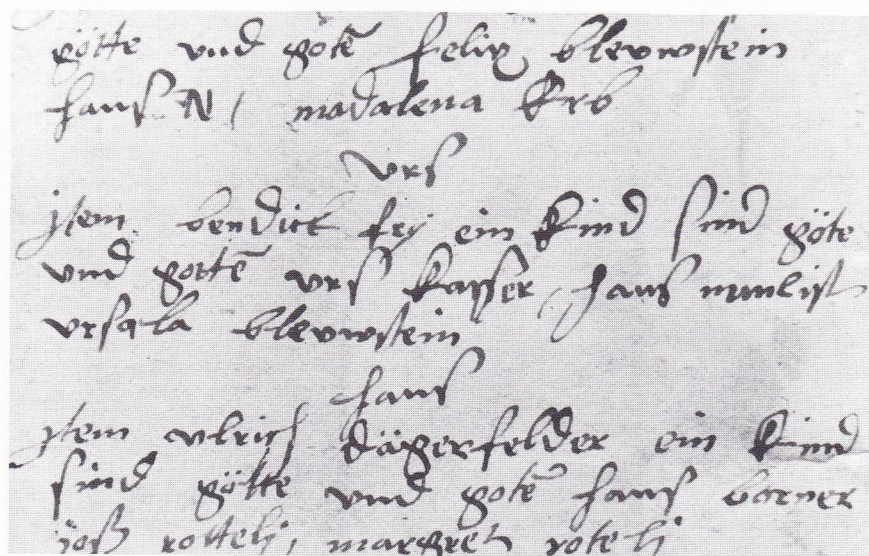 götte vnd gotē felix blevwstein
hans N, madalena Erb
vrs
jtem bendict fry ein kind sind göte
vnd gottē vrs kasser, hans nünlist
vrsala blevwstein
hans
jtem vlrich dägerfelder ein kind
sind götte vnd gotē hans borner
joß rottelj, margret rotelj